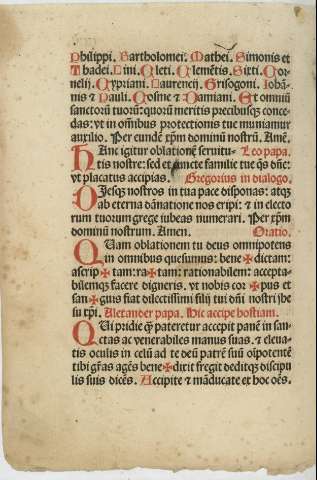 Philippi. Bartholomei. Mathei. Simonis et
Thadei. Lini. Cleti. Clemētis. Sixti. Cor-
nelij. Cypriani. Laurencij. Grisogoni. Johā-
nis ⁊ Pauli. Cosme ⁊ Damiani. Et omniū
sanctorū tuorū: quorū meritis precibusqꝫ conce-
das: vt in omnibus protectionis tue muniamur
auxilio. Per eundē xp̄m dominū nostrū. Amē.
Hanc igitur oblationē servitu- Leo papa.
tis nostre: sed et cuncte familie tue qs̄ dn̄e:
vt placatus accipias. Gregorius in dialogo.
Diesqꝫ nostros in tua pace disponas: atqꝫ
ab eterna dānatione nos eripi: ⁊ in electo
rum tuorum grege iubeas numerari. Per xp̄m
dominum nostrum. Amen. Oratio.
Quam oblationem tu deus omnipotens
in omnibus quesumus: bene✠dictam:
ascrip✠tam: ra✠tam: rationabilem: accepta-
bilemqꝫ facere digneris. vt nobis cor✠pus et
san✠guis fiat dilectissimi filij tui dn̄i nostri jhe
su xp̄i. Alexander papa. Hic accipe hostiam.
Qui pridie qꝫ pateretur accepit panē in san-
ctas ac venerabiles manus suas. ⁊ eleva-
tis oculis in celū ad te deū patrē suū oīpotentē
tibi gr̄as agēs bene✠dixit fregit deditqꝫ discipu
lis suis dicēs. Accipite ⁊ māducate et hoc oēs.